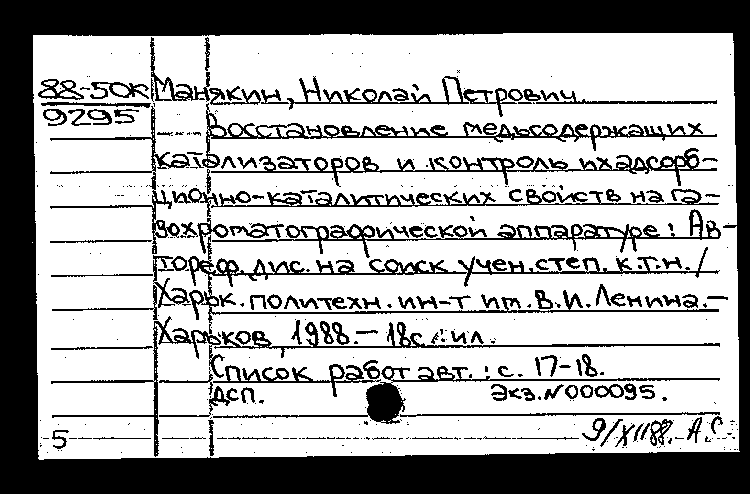 88-50к Манякин, Николай Петрович.
9295 Восстановление медьсодержащих
катализаторов и контроль их адсорб-
ционно-каталитических свойств на га-
зохроматографической аппаратуре: Ав-
тореф. дис. на соиск учен. степ. к.т.н. /
Харьк. политехн. ин-т им. В.И. Ленина. –
Харьков, 1988. – 18с.: ил.
Список работ авт.: с. 17-18.
ДСП. Экз. N 000095.
5 9/XII 88. А.С.